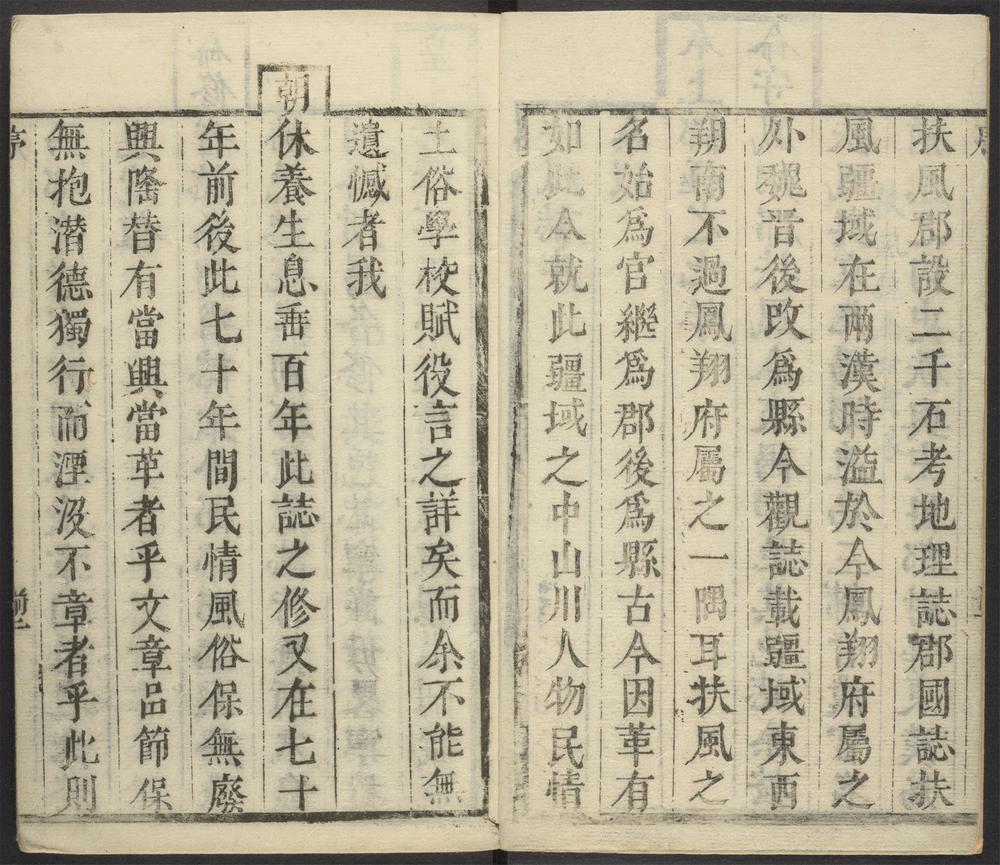 扶風郡設二千石考地理誌郡國誌扶
風疆域在兩漢時溢於今鳳翔府屬之
外魏晉後改爲縣今觀誌載疆域東西
朔南不過鳳翔府屬之一隅耳扶風之
名始爲官繼爲郡後爲縣古今因革有
如此今就此疆域之中山川人物民情
土俗學校賦役言之詳矣而余不能無
遺憾者我
朝休養生息垂百年此誌之修又在七十
年前後此七十年間民情風俗保無廢
興隆替有當興當革者乎文章品節保
無抱潛德獨行而湮沒不章者乎此則
序